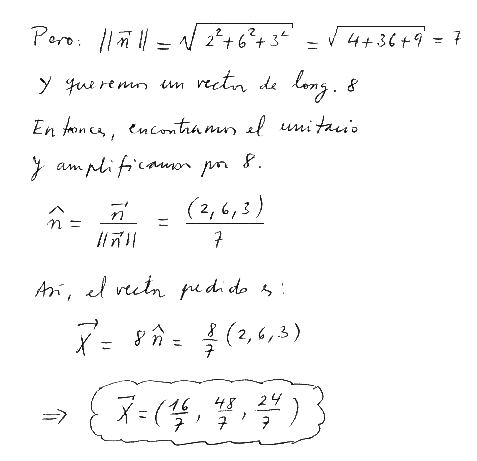 Pero: ||n⃗|| = √(2²+6²+3²) = √(4+36+9) = 7
Y queremos un vector de long. 8
Entonces, encontramos el unitario
y amplificamos por 8.
n̂ = n⃗/||n⃗|| = (2,6,3)/7
Así, el vector pedido es:
X⃗ = 8n̂ = 8/7 (2,6,3)
⇒ X⃗ = (16/7, 48/7, 24/7)